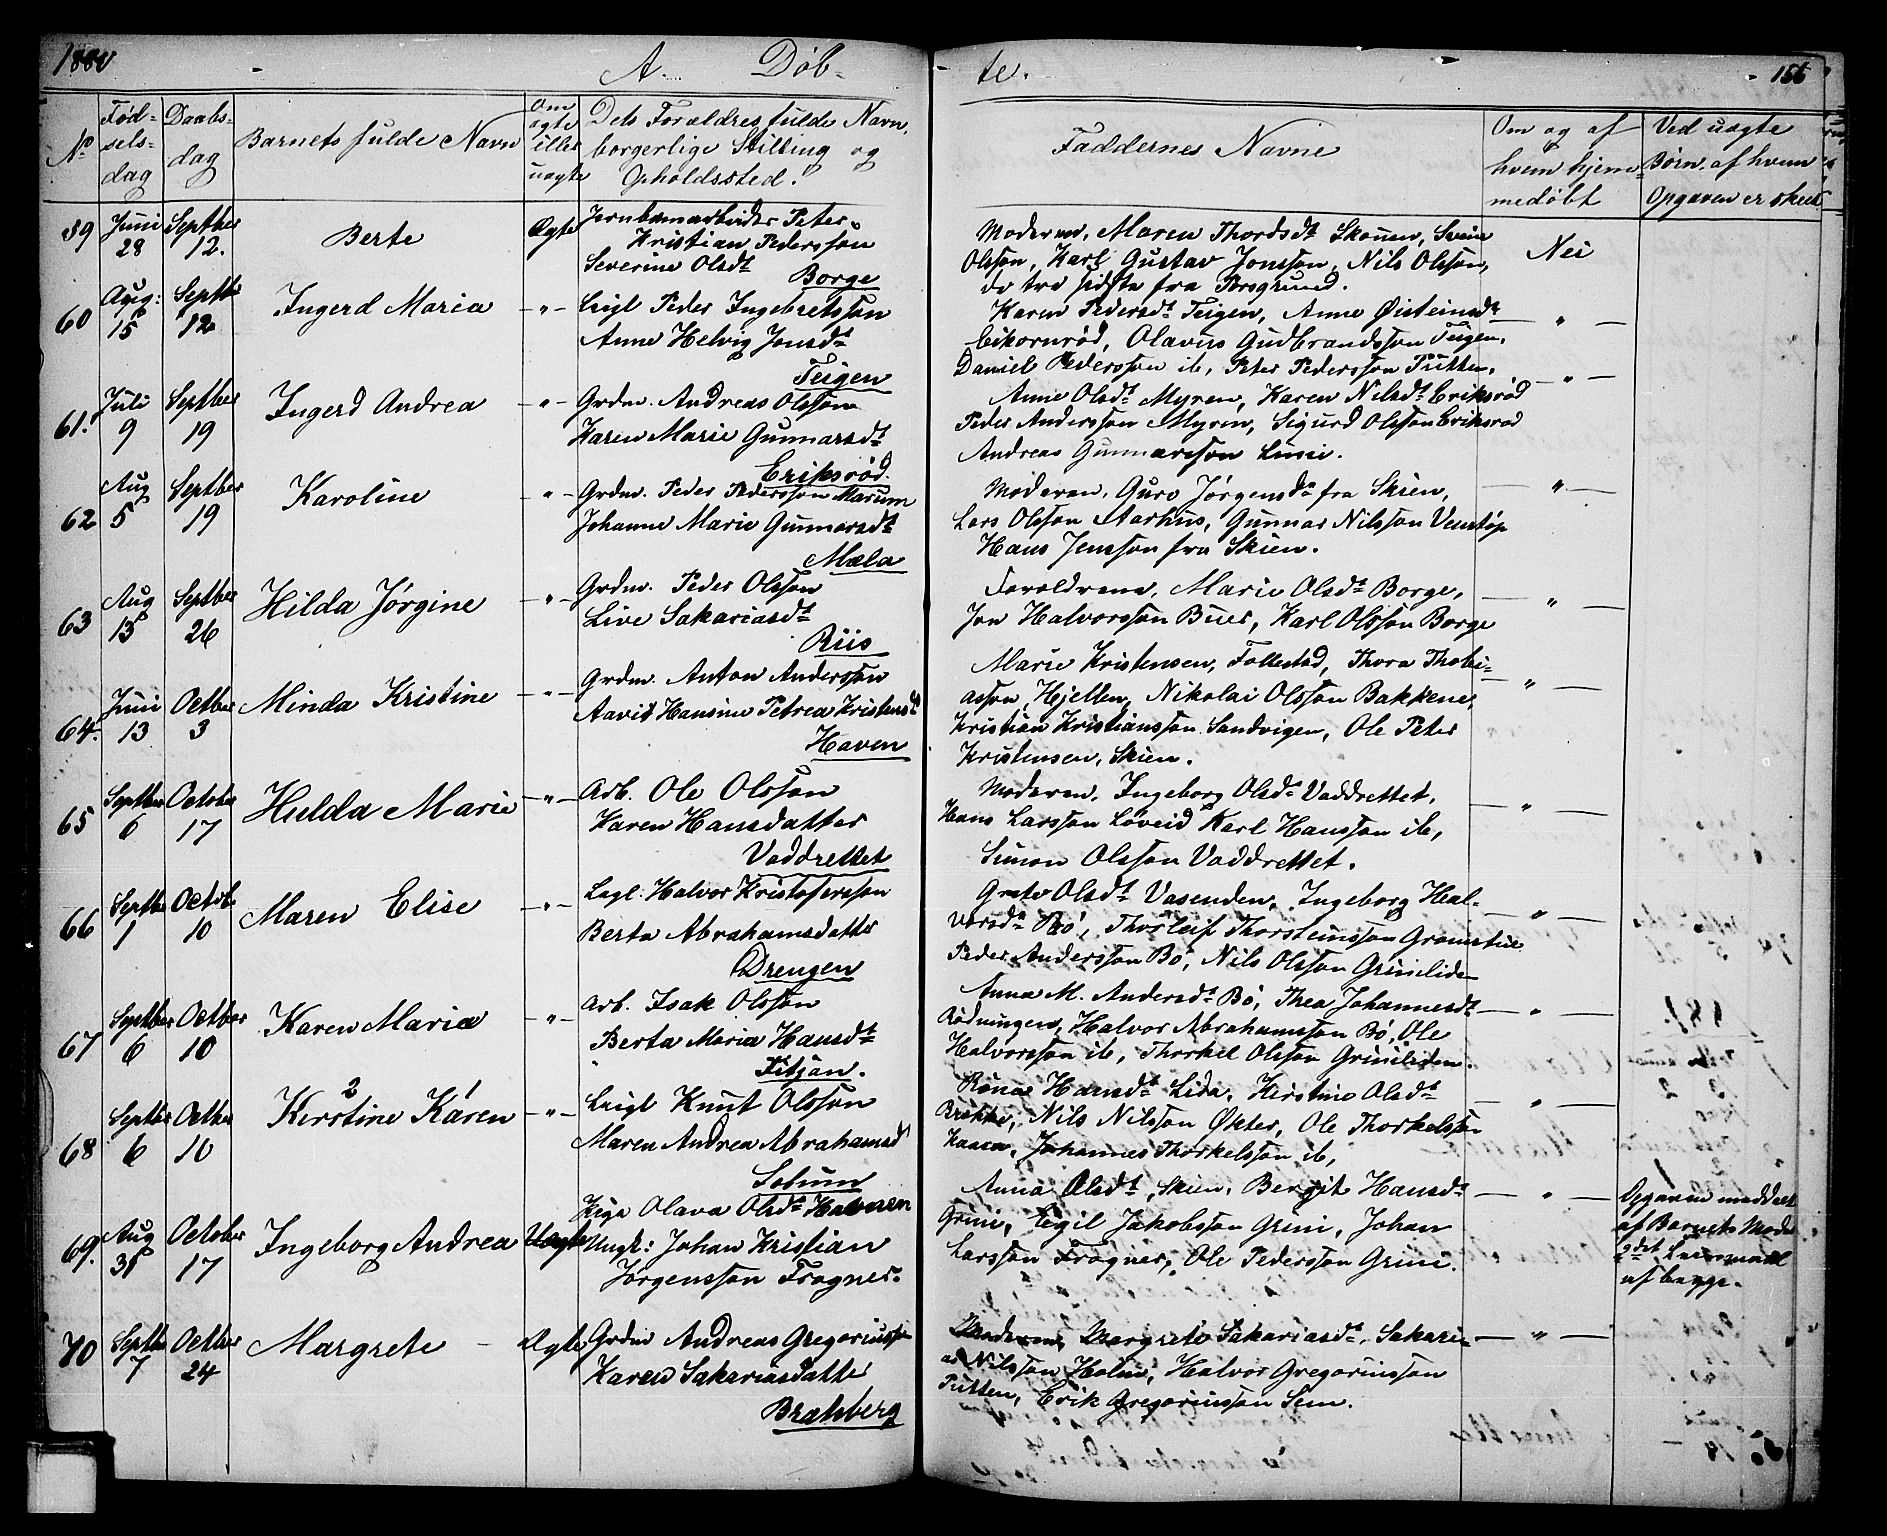 1880
A. Døb-
te.
156
No
Fød-
sels-
dag
Daabs-
dag
Barnets fulde Navn
Om
ægte
eller
uægte
Dets Forældres fulde Navn,
borgerlige Stilling og
Opholdssted.
Faddernes Navne
Om og af
hvem hjem-
medøbt
Ved uægte
Børn, af hvem
Opgaven er skeet
59
Juni
28
Septber
12.
Berte
Ægte
Jernbanearbeider Peter
Kristian Pederssøn
Severine Olsdt
Borge
Moderen, Maren Thordsdt Skouen, Svein
Olssøn, Karl Gustav Jonssøn, Nils Olssøn,
de tre sidste fra Porsgrund.
Nei
60
Aug:
15
Septbr
12
Ingerd Maria
- " -
Leigl Peder Ingebretssøn
Anne Helvig Jonsdt
Teigen
Karen Pedersdt Teigen, Anne Øisteinsdt
Eikornrød, Olavus Gudbrandssøn Teigen,
Daniel Pederssøn ib, Peter Pederssøn Putten,
— " —
61.
Juli
9
Septber
19
Ingerd Andrea
- " -
Grdm. Andreas Olssøn
Karen Marie Gunnarsdt
Eriksrød.
Anne Olsdt Myren, Karen Nilsdt Eriksrød
Peder Anderssøn Myren, Sigurd Olssøn Eriksrød
Andreas Gunnarssøn Linie.
— " —
62
Aug
5
Septber
19
Karoline
- " -
Grdm. Peder Pederssøn Marum
Johanne Marie Gunnarsdt
Mæla
Moderen, Guro Jørgensdt fra Skien,
Lars Olssøn Aarhus, Gunnar Nilssøn Venstøp
Hans Jenssøn fra Skien.
— " —
63
Aug
13
Septber
26
Hilda Jørgine
- " -
Grdm. Peder Olssøn
Live Sakariasdt
Riis
Forældrene, Marie Olsdt Borge,
Jon Halvorssøn Buer, Karl Olssøn Borge
— " —
64.
Juni
13
Octber
3
Minda Kristine
- " -
Grdm. Anton Anderssøn
Hansine Petrea Kristensdt
Haven
Marie Kristensen, Follestad, Thora Thobi-
assøn, Hjellen, Nikolai Olssøn Bakkene,
Kristian Kristianssøn Sandvigen, Ole Peter
Kristensen, Skien.
— " —
65
Septber
6
October
17
Hulda Marie
- " -
Arb. Ole Olssøn
Karen Hansdatter
Vaddrettet
Moderen, Ingeborg Olsdt Vaddrettet,
Hans Larssøn Løveid Karl Hanssøn ib,
Simon Olssøn Vaddrettet.
— " —
66
Septbr
1
Octob
10
Maren Elise
- " -
Leigl. Halvor Kristoferssøn
Berta Abrahamsdatter
Drengen
Grete Olsdt Vasenden, Ingeborg Hal-
vorsdt Bö, Thorleif Thorsteinssøn
Peder Anderssøn Bö, Nils Olssøn Grinilide
— " —
67
Septber
6
Octber
10
Karen Maria
- " -
Arb. Isak Olssøn
Berta Maria Hansdt
Fitjan.
Anna M. Andersdt Bö, Thea Johannesdt
Rødningen, Halvor Abrahamssøn Bö, Ole
Halvorssøn ib, Thorkel Olssøn Griniliden.
— " —
68
Septbr
6
Octber
10
2 1
Kirstine Karen
- " -
Leigl Knut Olssøn
Maren Andrea Abrahamsd
Solum
Hansdt Lida, Kerstine Olsdt
Brække, Nils Nilssøn Økter, Ole Thorkelssøn
Johannes Thorkelssøn ib,
— " —
69.
Aug
31
October
17
Ingeborg Andrea
Uægte
Piga Olava Olsdt
Ungk: Johan Kristian
Jørgenssøn Frogner.
Anna Olsdt, Skien, Bergit Hansdt
Grini, Egil Jakobssøn Grini, Johan
Larssøn Frogner, Ole Pederssøn Grini.
— " —
Opgaven meddelt
af Barnets Moder
af begge.
70
Septbr
7
Octber
24
Margrete
Ægte
Grdm Andreas Gregoriussøn
Karen Sakariasdatter
Brækberg
Moderen, Margrete Sakariasdt, Sakari-
as Nilssøn Holm, Halvor Gregoriussøn
Putten, Erik Gregoriussøn Sem.
— " —